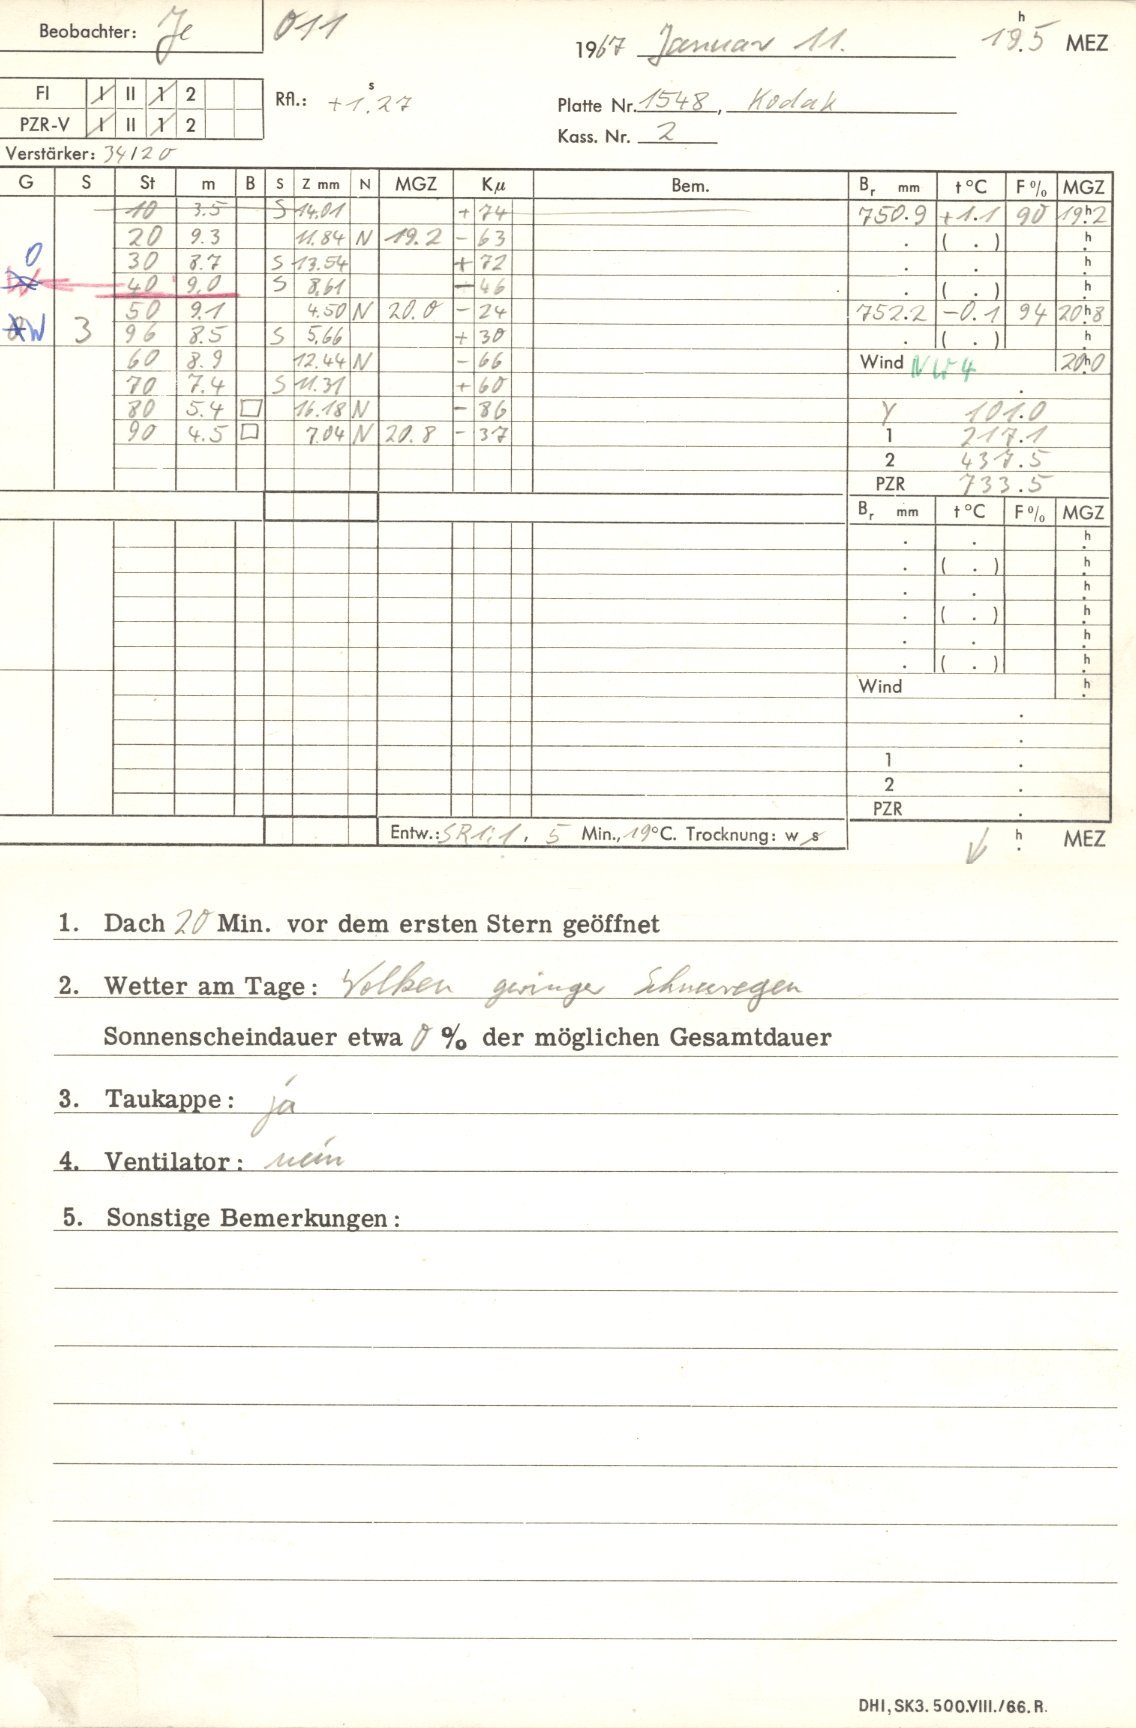 Beobachter: Je 011
1967 Januar 11. 19.5 h MEZ
FI I II 1 2
PZR-V I II 1 2
Rfl.: +1.27 s
Platte Nr. 1548, Kodak
Kass. Nr. 2
Verstärker: 34/20
G S St m B S Z mm N MGZ Kμ Bem. Br mm t °C F % MGZ
10 3.5 S 14.01 + 74 750.9 +1.1 90 19h2
20 9.3 11.84 N 19.2 - 63 . ( . ) h
0 30 8.7 S 13.54 + 72 . . h
40 9.0 S 8.61 - 46 . ( . ) h
50 9.1 4.50 N 20.0 - 24 752.2 -0.1 94 20h8
W 3 96 8.5 S 5.66 + 30 . ( . ) h
60 8.9 12.44 N - 66 Wind NW 4 20h0
70 7.4 S 11.31 + 60 .
80 5.4 □ 16.18 N - 86 Y 101.0
90 4.5 □ 7.04 N 20.8 - 37 1 217.1
2 437.5
PZR 733.5
Br mm t °C F % MGZ
. . h
. ( . ) h
. . h
. ( . ) h
. . h
. ( . ) h
Wind h
.
.
1 .
2 .
PZR .
Entw.: SR 1:1, 5 Min., 19 °C. Trocknung: w s
h MEZ
1. Dach 20 Min. vor dem ersten Stern geöffnet
2. Wetter am Tage: Wolken geringer Schneeregen
Sonnenscheindauer etwa 0 % der möglichen Gesamtdauer
3. Taukappe: ja
4. Ventilator: nein
5. Sonstige Bemerkungen:
DHI, SK3. 500.VIII./66. R.